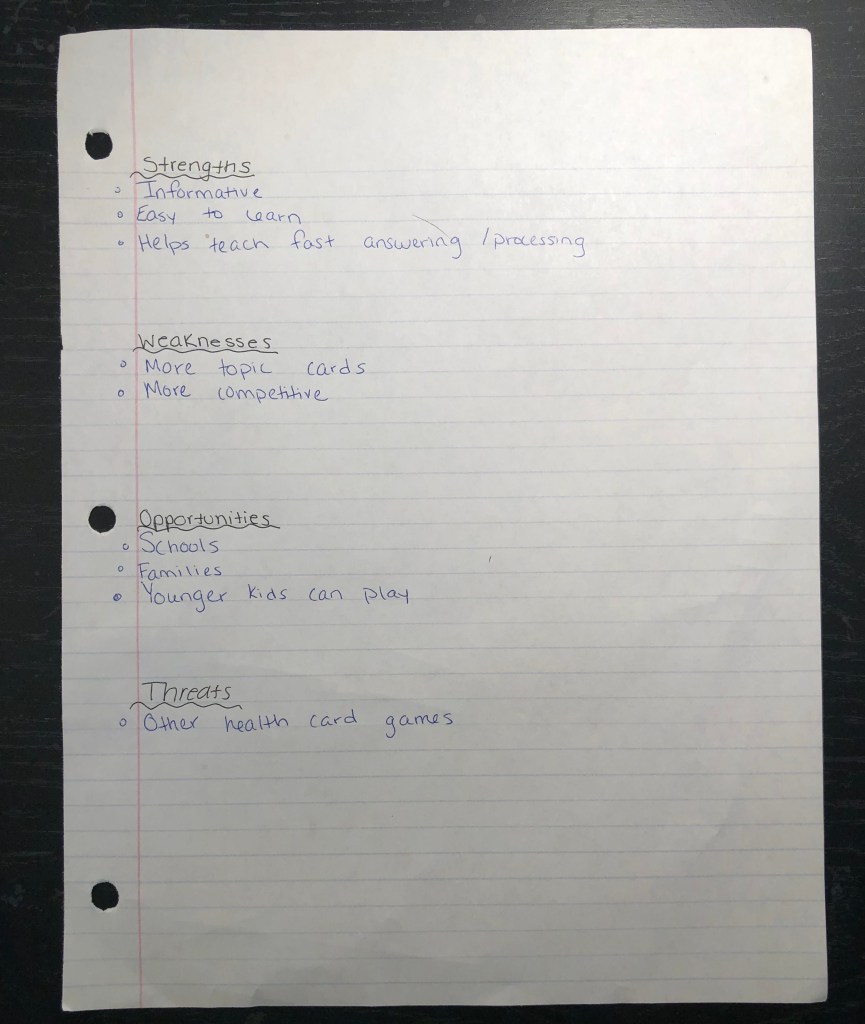 Strengths
◦ Informative
◦ Easy to learn
◦ Helps teach fast answering / processing
Weaknesses
◦ More topic cards
◦ More competitive
Opportunities
◦ Schools
◦ Families
◦ Younger kids can play
Threats
◦ Other health card games